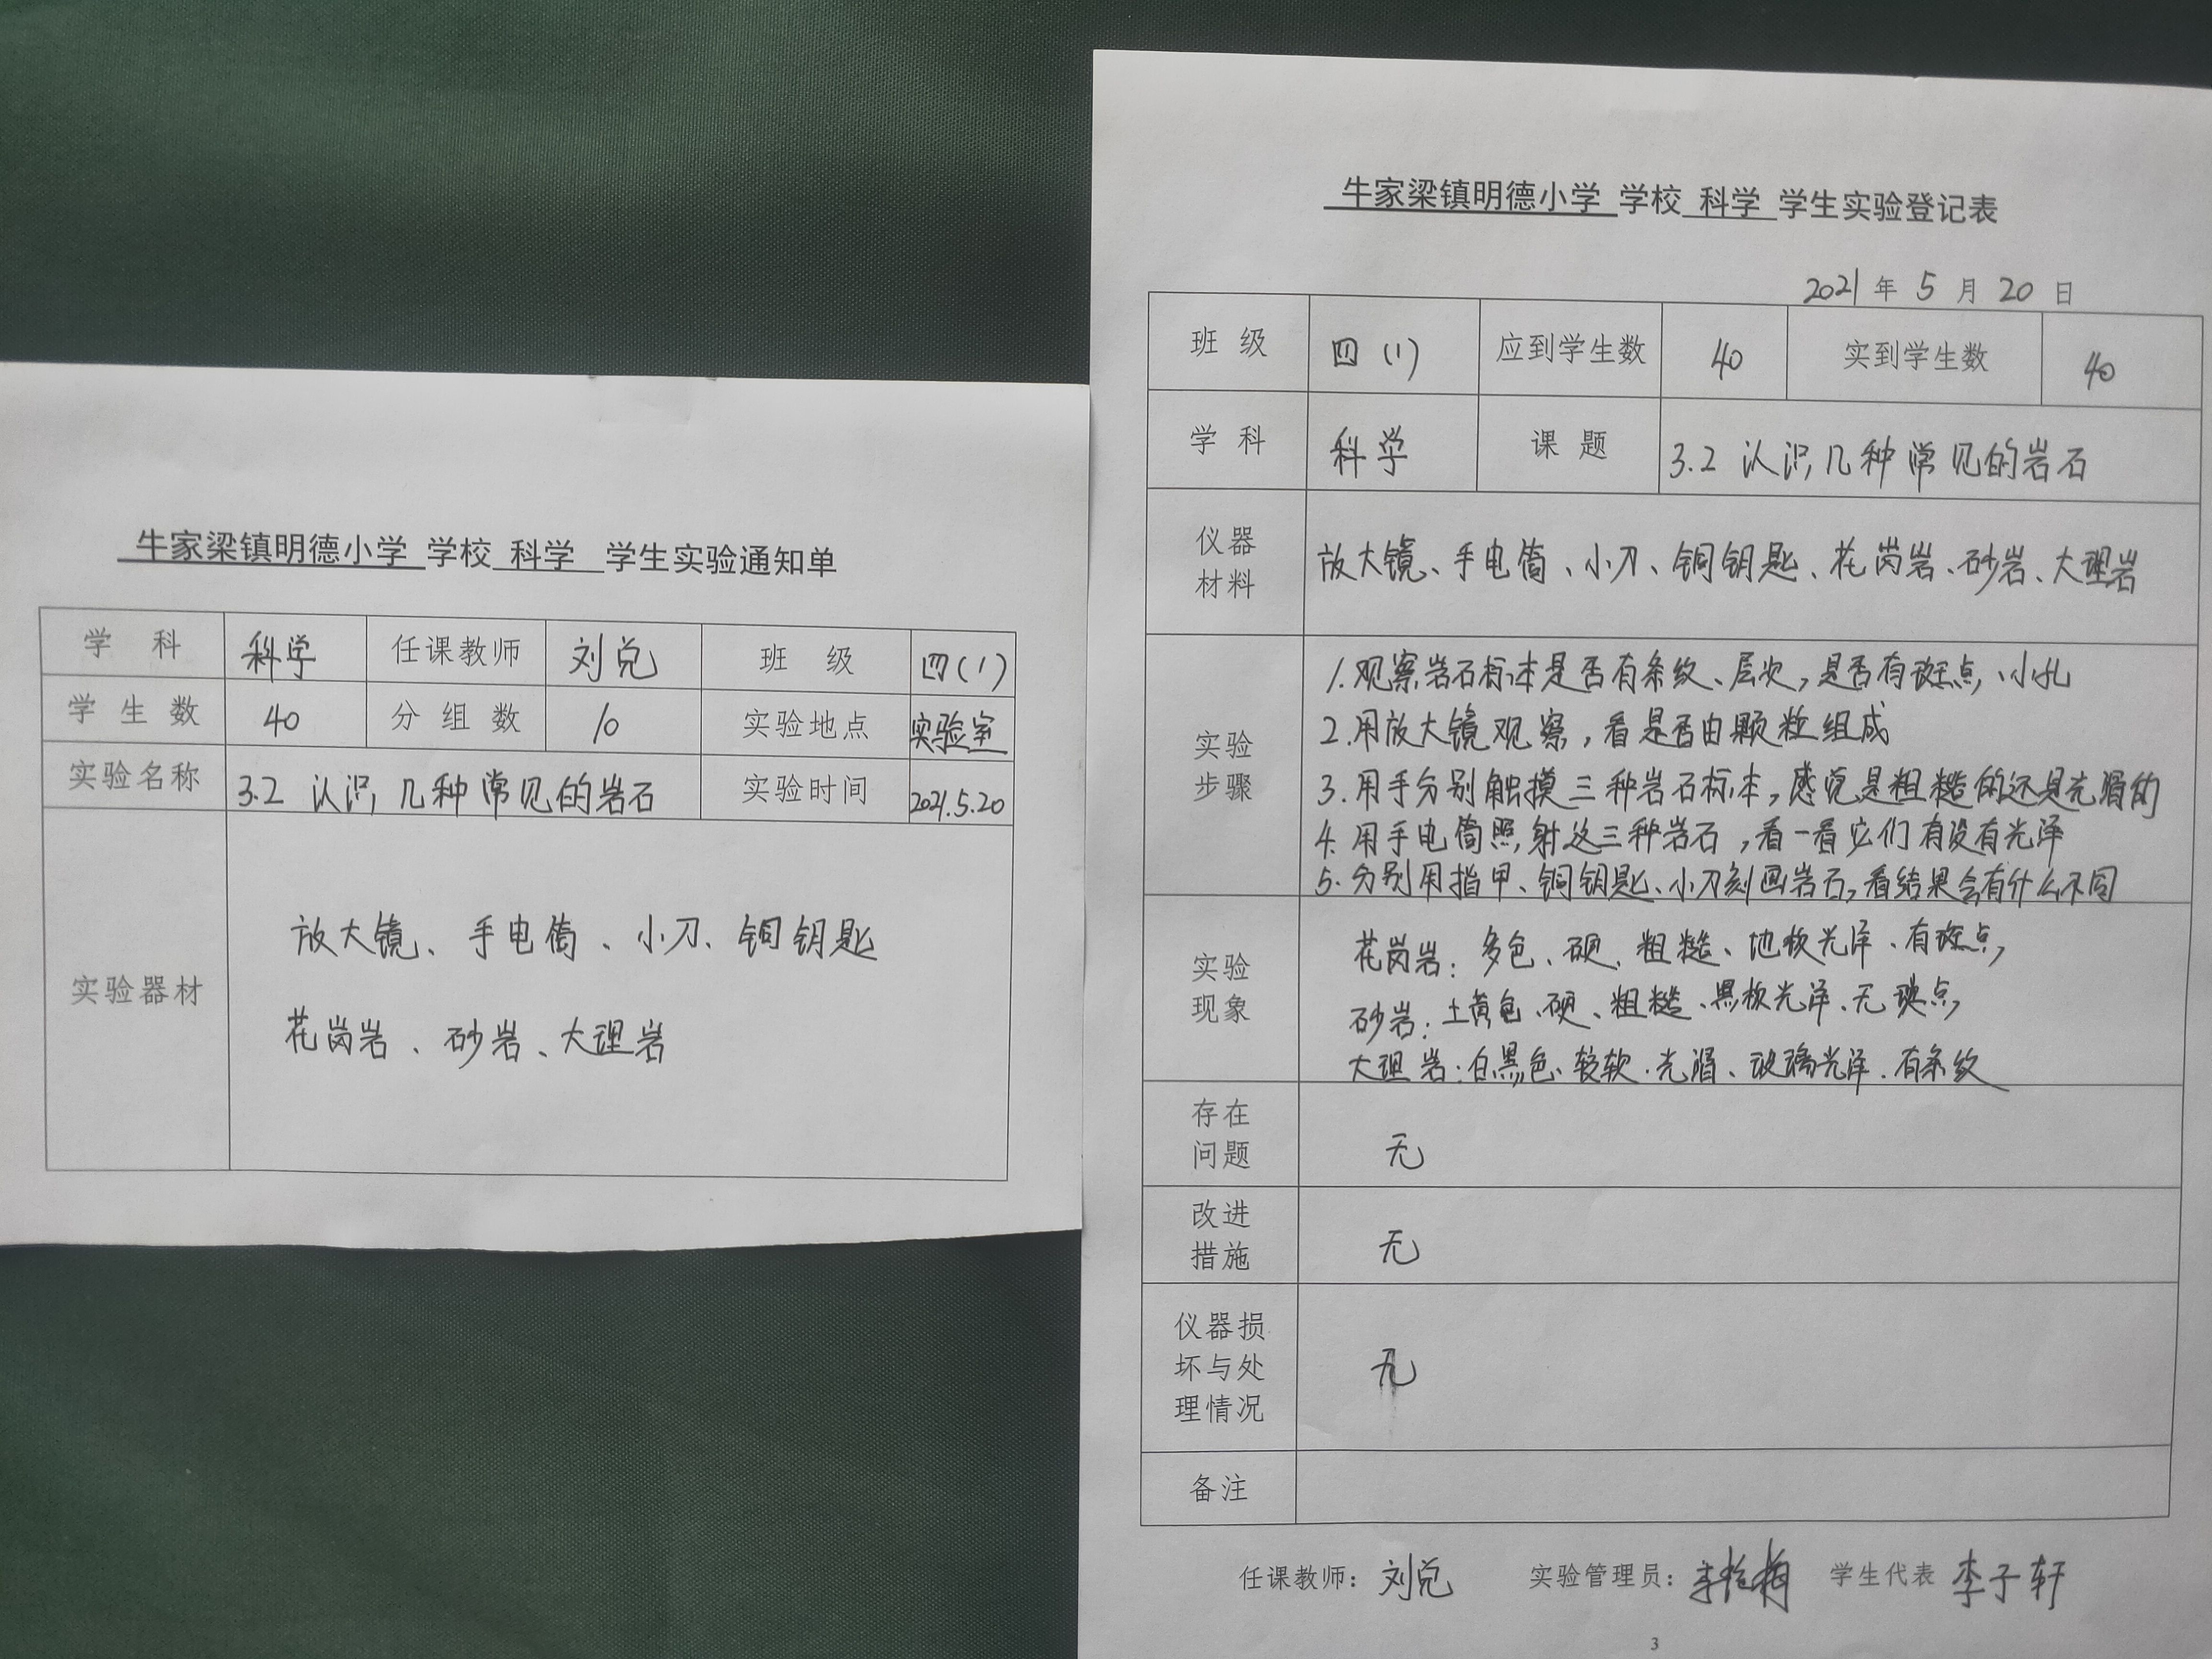 牛家梁镇明德小学 学校 科学 学生实验通知单
学 科 科学 任课教师 刘兑 班 级 四(1)
学生数 40 分组数 10 实验地点 实验室
实验名称 3.2 认识几种常见的岩石 实验时间 2021.5.20
实验器材
放大镜、手电筒、小刀、铜钥匙
花岗岩、砂岩、大理岩
牛家梁镇明德小学 学校 科学 学生实验登记表
2021年5月20日
班 级 四(1) 应到学生数 40 实到学生数 40
学 科 科学 课 题 3.2 认识几种常见的岩石
仪器
材料
放大镜、手电筒、小刀、铜钥匙、花岗岩、砂岩、大理岩
实验
步骤
1.观察岩石标本是否有条纹、层次,是否有斑点,、小孔
2.用放大镜观察,看是否由颗粒组成
3.用手分别触摸三种岩石标本,感觉是粗糙的还是光滑的
4.用手电筒照射这三种岩石,看一看它们有没有光泽
5.分别用指甲、铜钥匙、小刀刻画岩石,看结果会有什么不同
实验
现象
花岗岩:多色、硬、粗糙、地板光泽、有斑点,
砂岩:土黄色、硬、粗糙、黑板光泽、无斑点,
大理岩:白黑色、较软、光滑、玻璃光泽、有条纹
存在
问题
无
改进
措施
无
仪器损
坏与处
理情况
无
备注
任课教师:刘兑 实验管理员: 学生代表 李子轩
3